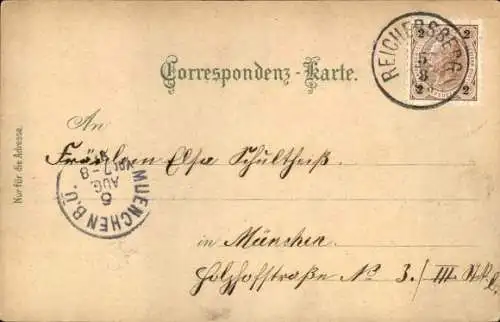 REICHERSBERG
5
8
2 2
2 2
Correspondenz-Karte.
Nur für die Adresse.
An
Fräulein Elsa Schultheiß
MUENCHEN B.Ü.
6
AUG.
Vor. 7-8
in München.
Holzhofstraße No 3./III